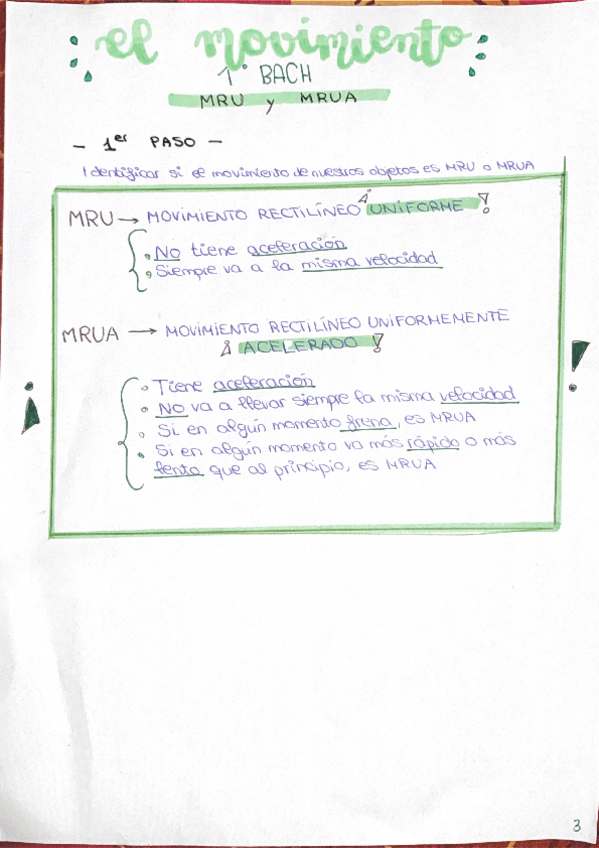 el movimiento
1º BACH
MRU y MRUA
- 1er PASO -
Identificar si el movimiento de nuestros objetos es MRU o MRUA
MRU → MOVIMIENTO RECTILÍNEO ¡UNIFORME!
• No tiene aceleración
• Siempre va a la misma velocidad
MRUA → MOVIMIENTO RECTILÍNEO UNIFORMEMENTE
¡ACELERADO!
• Tiene aceleración
• NO va a llevar siempre la misma velocidad
• Si en algún momento frena, es MRUA
• Si en algún momento va más rápido o más
lento que al principio, es MRUA
3